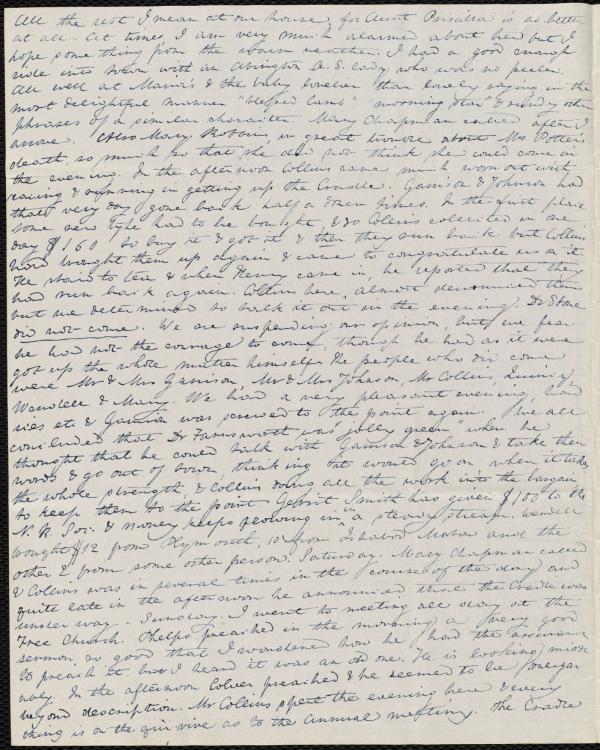 All the rest I mean at our house, for Aunt Priscilla is no better
at all. At times I am very much alarmed about her but I
hope some thing from the warm weather. I had a good enough
ride into town with an Abington A. S. lady, who was no peeler.
All well at Maria's & the baby lovelier than lovely saying in the
most delightful manner "blessed Lamb" "morning star" & sundry other
phrases of a similar character. Mary Chapman called after I
arrove. Also Mary Robbin, in great trouble about Mr Potter's
death, so much so that she did not think she could come in
the evening. In the afternoon Collins came much worn out with
racing & running in getting up the Cradle. Garrison & Johnson had
that very day gone back half a dozen times. In the first place
some new type had to be bought, & so Collins collected in one
day $160 to buy it & got it & then they run back but Collins
had brought them up again & came to congratulate us on it.
He staid to tea & when Henry came in, he reported that they
had run back again. Collins here, almost renounced them
but we determined to talk it out in the evening. Dr Stone
did not come. We are suspending our opinion, but we fear
he had not the courage to come, though he had as it were
got up the whole matter himself. The people who did come
were Mr & Mrs Garrison, Mr & Mrs Johnson, Mr Collins, Quincy,
Wendell & Mary. We had a very pleasant evening, had
ices etc & Garrison was screwed to the point again. We all
concluded that Dr Farnsworth was "jolly green" when he
thought that he could talk with Garrison & Johnson & take their
words & go out of town thinking it would go on when it takes
the whole strength, & Collins doing all the work into the bargain,
to keep them to the point. Gerrit Smith has given $100 to the
N. R. Soc. & money keeps flowing in in a steady stream. Wendell
brought $12 from Plymouth, 10 from Ichabod Morton and the
other 2 from some other person. Saturday. Mary Chapman called
& Collins was in several times in the course of the day and
quite late in the afternoon he announced that the Cradle was
under way. Sunday. I went to meeting all day at the
Free Church. Phelps preached in the morning a very good
sermon, so good that I wondered how he had the assurance
to preach it but I heard it was an old one. He is looking miser
ably. In the afternoon Colver preached & he seemed to be
beyond description. Mr Collins spent the evening here & every
thing is on the qui vive as to the annual meeting. The Cradle